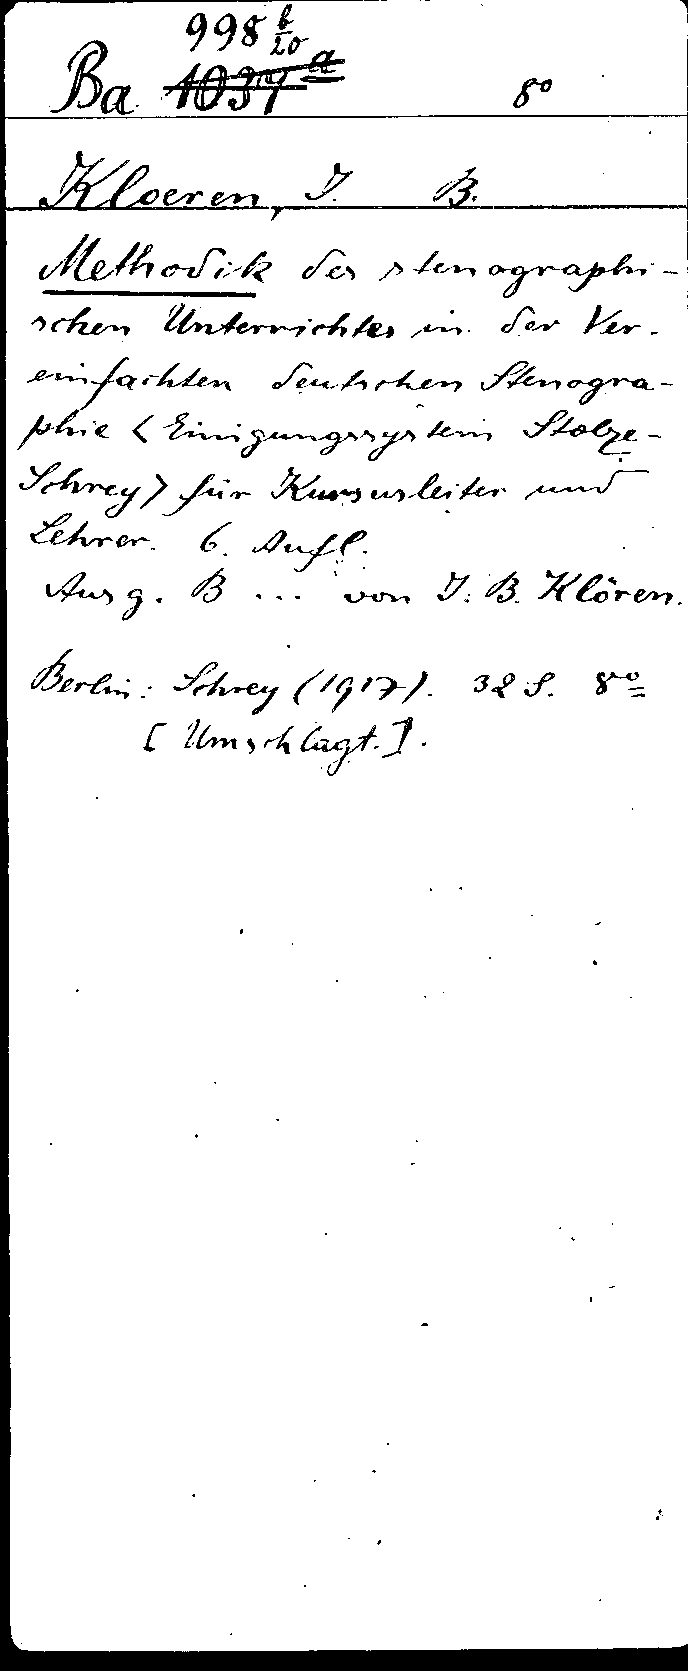 998 b/20
Ba 1037 a 8°
Kloeren, J. B.
Methodik des stenographi-
schen Unterrichtes in der Ver-
einfachten deutschen Stenogra-
phie < Einigungssystem Stolze-
Schrey > für Kursusleiter und
Lehrer. 6. Aufl.
Ausg. B ... von J. B. Klören.
Berlin: Schrey (1917). 32 S. 8°
[Umschlagt.].